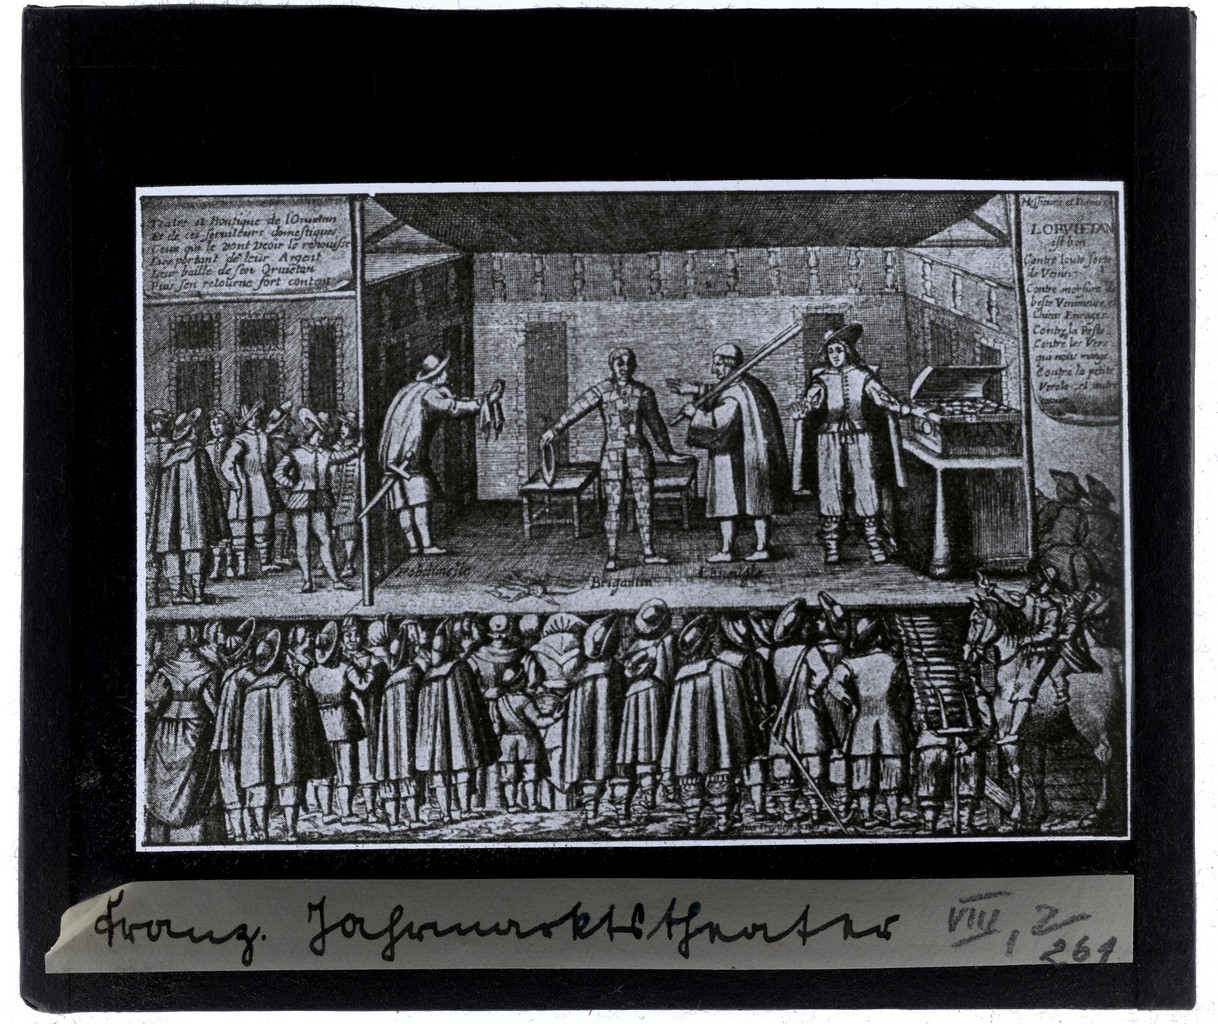 Teatre et Boutique de l'Oruietan
Et de ses seruiteurs domestiques
Ceux qui le vont veoir le rehouisse
Luy portant de leur Argent
Leur baille de son Oruietan
Puis s'en retourne fort content
Messieurs et Dames
LORVIETAN
est bon
Contre toute sorte
de Venin
Contre morsure de
beste Venimeuse et
Chien Enragés.
Contre la Peste
Contre les Vers
qui nous mange
Contre la petite
Verole et autre
Brigantin
Franz. Jahrmarktstheater
VIII, 2
261